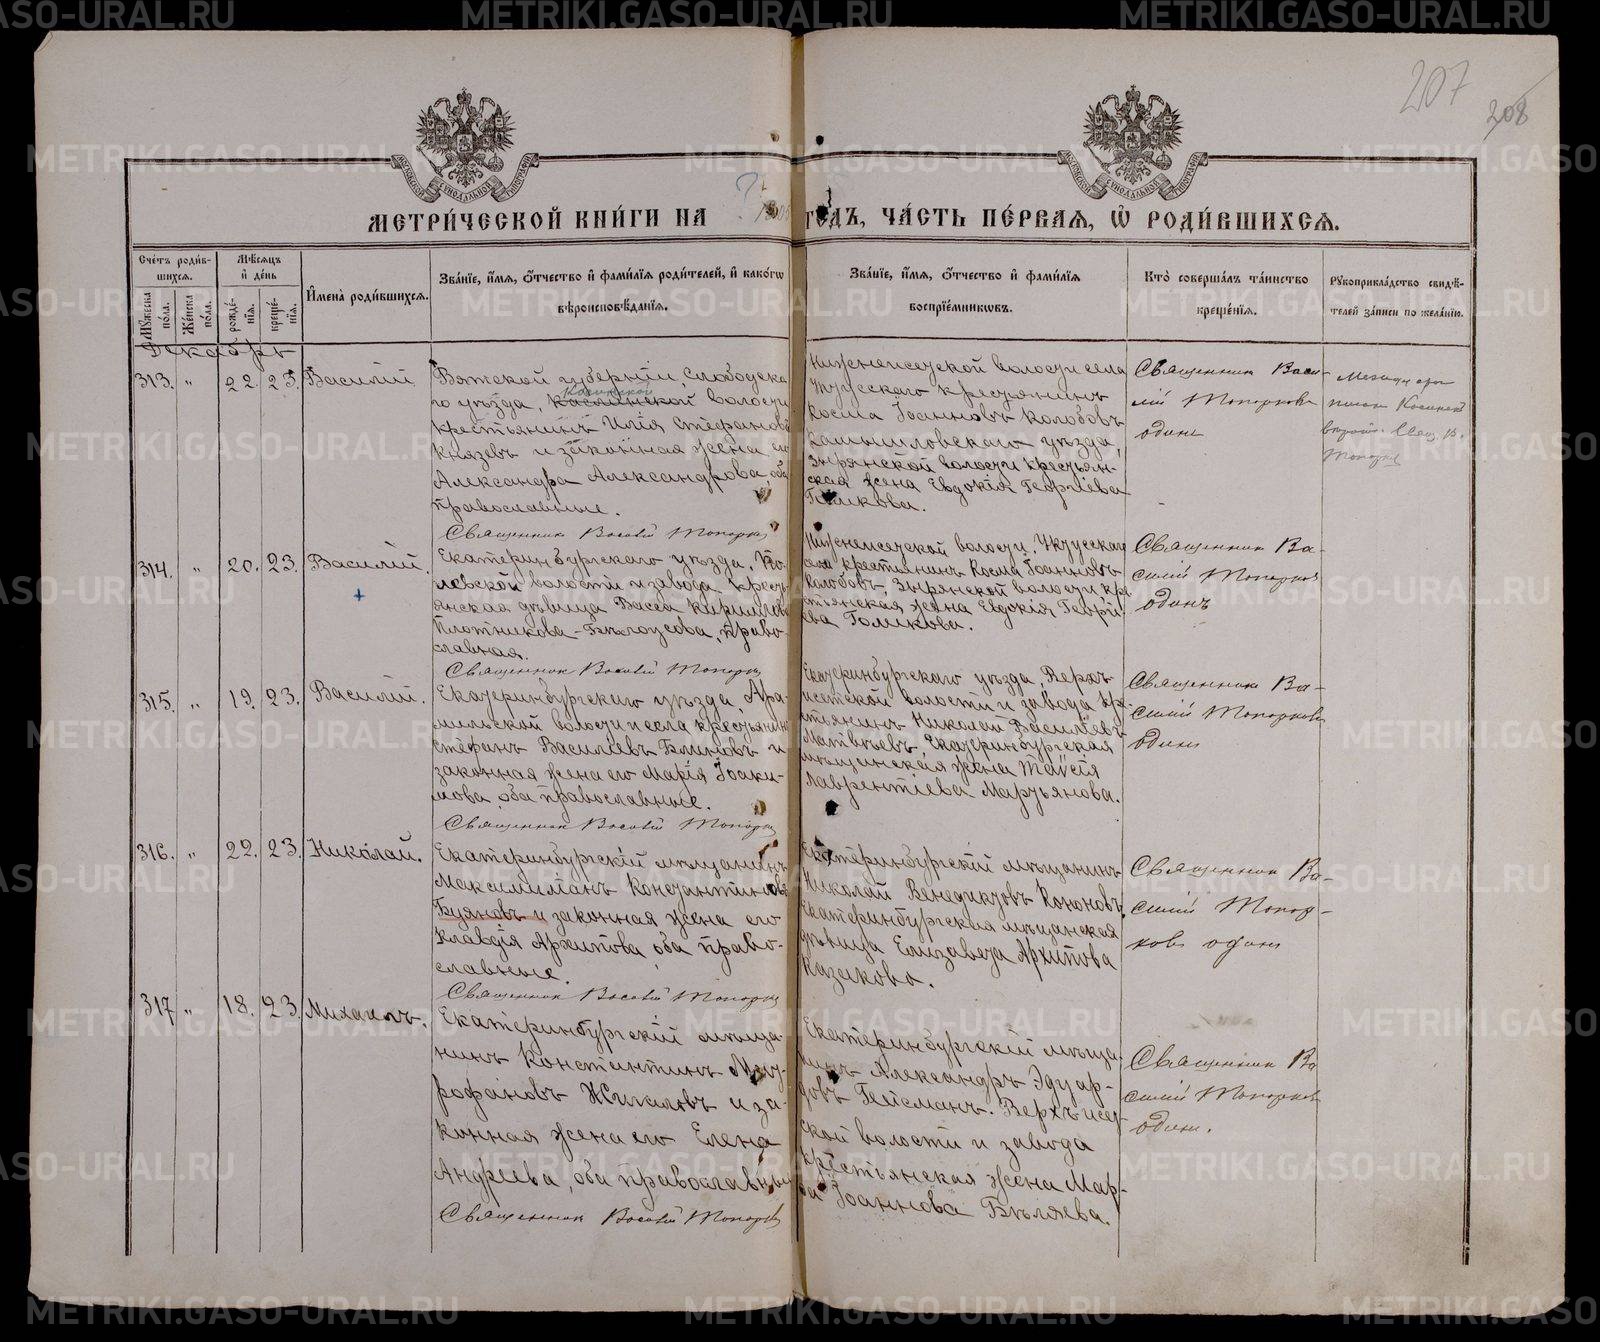 207
208
МЕТРИ́ЧЕСКОЙ КНИ́ГИ НА
ГОДЪ, ЧА́СТЬ ПЕ́РВАЯ, Ѿ РОДИ́ВШИХСЯ.
Сче́тъ роди́в-
шихся.
Му́жеска по́ла.
Же́нска по́ла.
Мѣ́сяцъ
и҆ де́нь
рожде́-
нїя.
креще́-
нїя.
И҆мена̀ роди́вшихся.
Зва́нїе, и҆́мя, ѻ҆́тчество и҆ фами́лїя роди́телей, и҆ како́гѡ
вѣроисповѣ́данїя.
Зва́нїе, и҆́мя, ѻ҆́тчество и҆ фами́лїя
воспрїе́мникѡвъ.
Кто̀ соверша́лъ та́инство
креще́нїя.
Рꙋкоприкла́дство свидѣ́-
телей за́писи по жела́нїю.
Декабрь
313. " 22. 23. Василий
Вятской губернии, Слободска
го уѣзда, Косинской волости
крестьянинъ Илія Стефановъ
Князевъ и законная жена его
Александра Александрова, оба
православные.
Священникъ Василій Топорковъ
Нижнеисетской волости села
Уктусскаго крестьянинъ
Косма Іоанновъ Колобовъ
Камышловскаго уѣзда,
Зырянской волости крестьян-
ская жена Евдокія Георгіева
Голикова.
Священникъ Васи-
лій Топорковъ
одинъ
314. " 20. 23. Василій.
Екатеринбургскаго уѣзда, По-
левской волости и завода кресть-
янская дѣвица Васса Кириллова
Плотникова-Бѣлоусова, право-
славная.
Священникъ Василій Топорковъ
Нижнеисетской волости, Уктусскаго
села крестьянинъ Косма Іоанновъ
Колобовъ, Зырянской волости кре-
стьянская жена Евдокія Георгі-
ева Голикова.
Священникъ Ва-
силій Топорковъ
одинъ
315. " 19. 23. Василій.
Екатеринбургскаго уѣзда, Ара-
мильской волости и села крестьянинъ
Стефанъ Василіевъ Блиновъ и
законная жена его Марія Іоаки-
мова, оба православные.
Священникъ Василій Топорковъ
Екатеринбургскаго уѣзда Верхъ-
исетской волости и завода кре-
стьянинъ Николай Василіевъ
Матвѣевъ, Екатеринбургская
мѣщанская жена Таисія
Лаврентіева Мартьянова.
Священникъ Ва-
силій Топорковъ
одинъ
316. " 22. 23. Николай.
Екатеринбургскій мѣщанинъ
Максимиліанъ Константиновъ
Буяновъ и законная жена его
Клавдія Архипова, оба право-
славные.
Священникъ Василій Топорковъ
Екатеринбургскій мѣщанинъ
Николай Венедиктовъ Кононовъ,
Екатеринбургская мѣщанская
дѣвица Елизавета Архипова
Казакова.
Священникъ Ва-
силій Топор-
ковъ одинъ
317 " 18. 23. Михаилъ.
Екатеринбургскій мѣща-
нинъ Константинъ Мит-
рофановъ Жигаловъ и за-
конная жена его Елена
Андреева, оба православные
Священникъ Василій Топорковъ
Екатеринбургскій мѣща-
нинъ Александръ Эдуар-
довъ Гейсманъ. Верхъ-исет-
ской волости и завода
крестьянская жена Мар-
ѳа Іоаннова Бѣляева.
Священникъ Ва
силій Топорковъ
одинъ.
METRIKI.GASO-URAL.RU